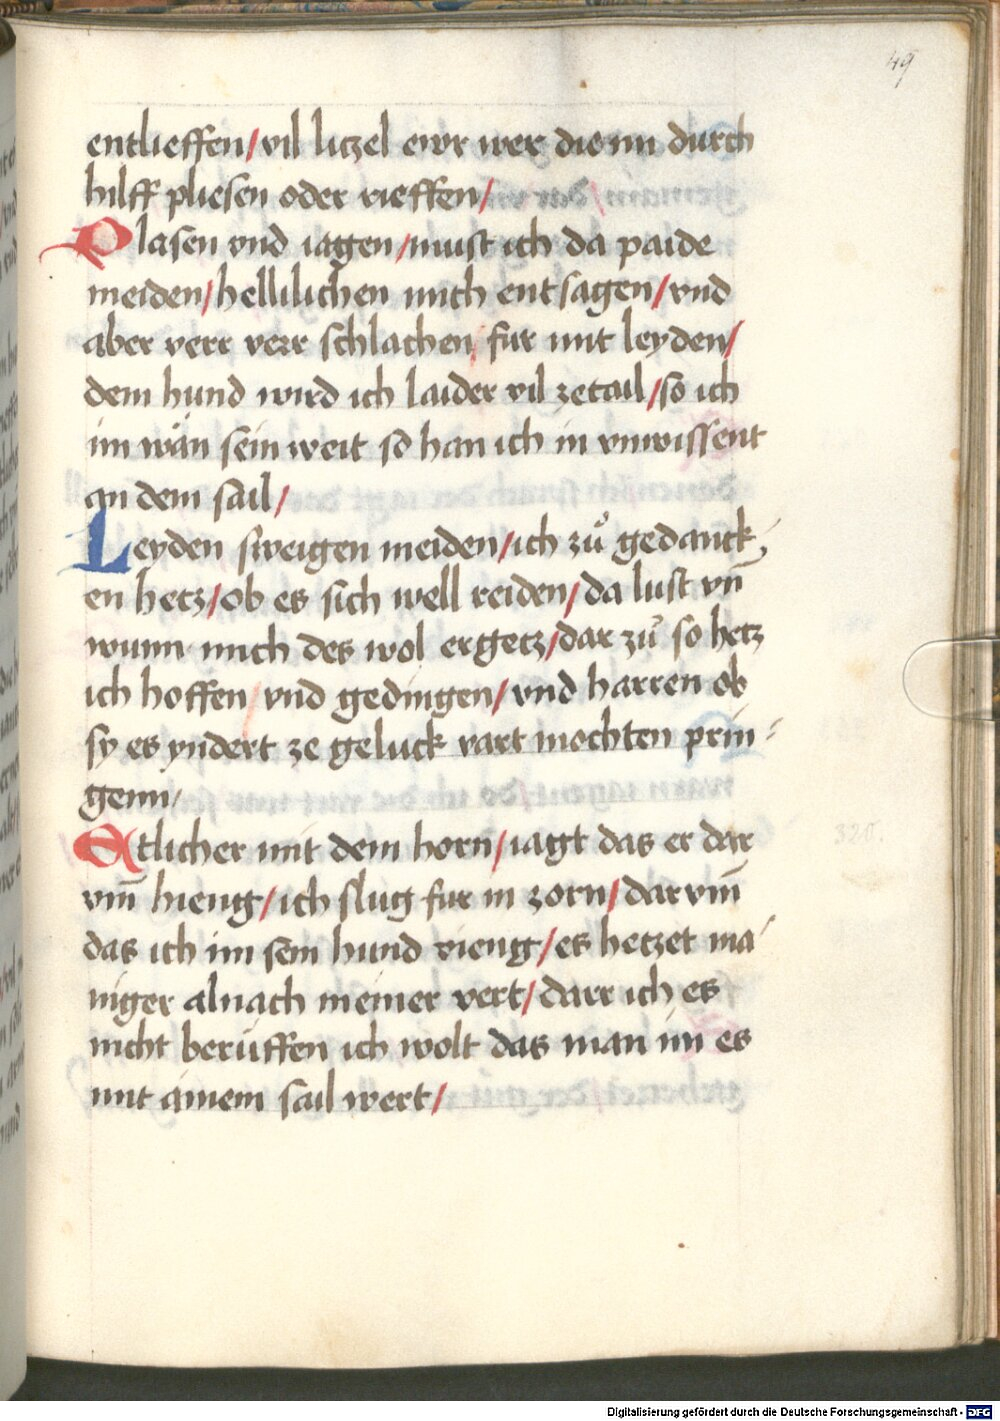 49
entlieffen/vil liczel ewr wer die im durch
hilff pliesen oder rieffen/
Plasen vnd iagen/must ich da paide
meiden/hellilichen mich entsagen/vnd
aber verr verr schlachen/fur mit leyden/
dem hund wird ich laider vil zetail/so ich
im wän sein weit so han ich in vnwissent
an dem sail/
Leyden sweigen meiden/ich zů gedanck
en hetz/ob es sich well reiden/da lust vn̄
wunn mich des wol ergetz/dar zů so hetz
ich hoffen/vnd gedingen/vnd harren ob
sy es yndert ze geluck vart mochten prin-
genn/
Etlicher mit dem horn/iagt das er dar
vm̄ hieng/ich slug fur in zorn/darvm̄
das ich im sein hund vieng/es hetzet ma
niger alnach meiner vert/darr ich es
nicht berüffen ich wolt das man im es
mit ainem sail wert/
320.
Digitalisierung gefördert durch die Deutsche Forschungsgemeinschaft - DFG